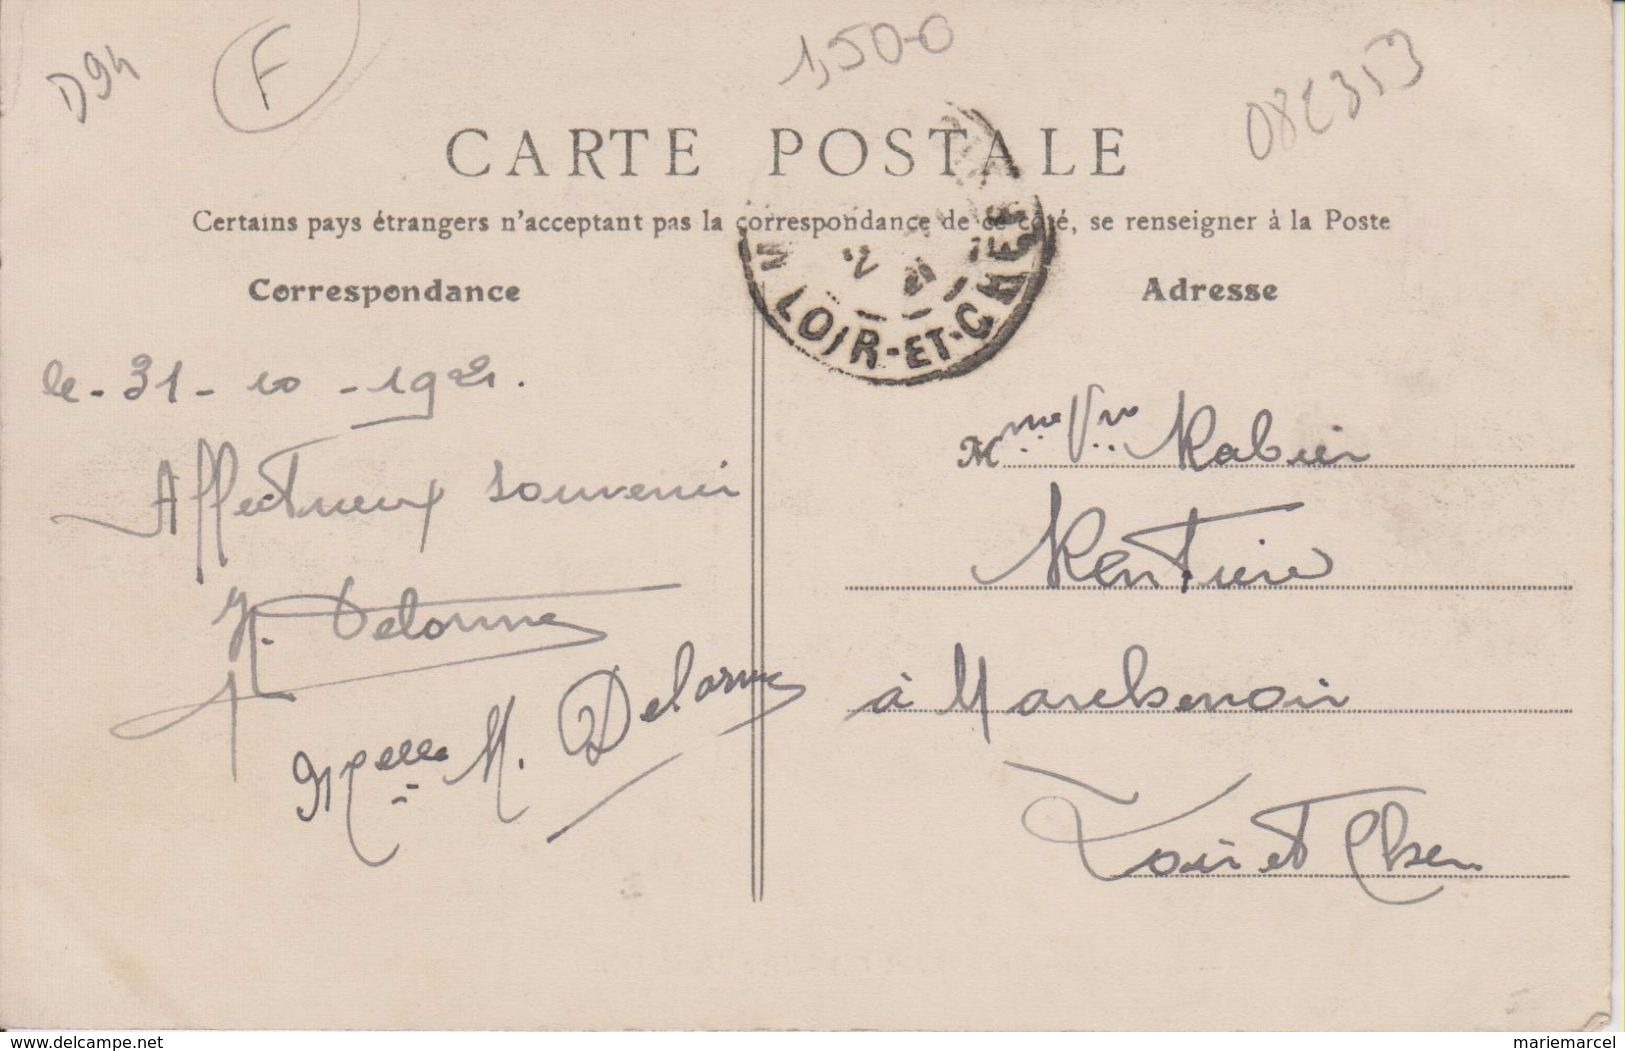 D94
F
1,500
08C353
CARTE POSTALE
Certains pays étrangers n'acceptant pas la correspondance de ce côté, se renseigner à la Poste
Correspondance
Adresse
LOIR-ET-CHER
le - 31 - 10 - 1921.
Affectueux souvenir
H. Delorme
Melle M. Delorme
Mme Vve Rabier
Rentière
à Marchenoir
Loir et Cher
www.delcampe.net
mariemarcel